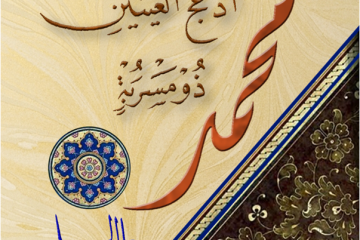 أدعج العينين
ذُو مَسْرُبَةٍ
محمد